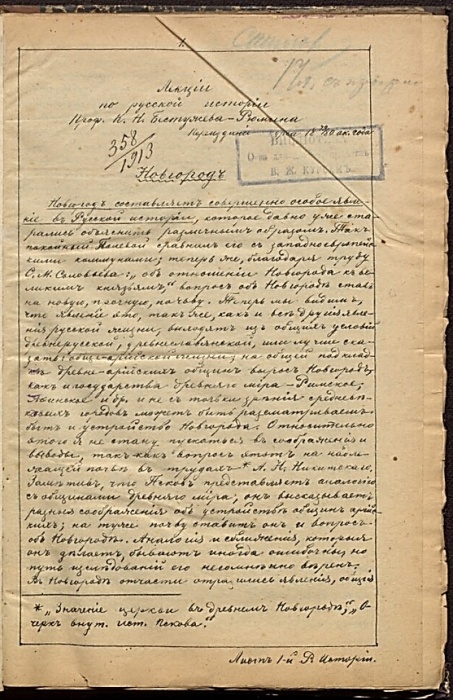 1
Лекціи
по русской исторіи
Проф. К. Н. Бестужева-Рюмина
358/1913
Новгородъ
Новгородъ составляетъ совершенно особое явле-
ніе въ Русской исторіи, которое давно уже ста-
рались объяснить различнымъ образомъ. Такъ
покойный Полевой сравнилъ его съ западноевропей-
скими коммунами; теперь же, благодаря труду
С. М. Соловьева: „объ отношеніи Новгорода къ ве-
ликимъ князьямъ," вопросъ объ Новгородѣ сталъ
на новую, прочную, почву. Теперь мы видимъ,
что явленіе это, также, какъ и всѣ другія явле-
нія русской жизни, выходятъ изъ общихъ условій
древнерусской, древнеславянской, или лучше ска-
зать: обще-арійской жизни; на общей подклад-
древне-арійскихъ общинъ выросъ Новгородъ,
какъ и государства древняго міра – Римское,
Аѳинское и др. и не съ точки зрѣнія среднев-
ковыхъ городовъ можетъ быть разсматриваемъ
бытъ и устройство Новгорода. Относительно
этого я не стану пускаться въ соображенія и
выводы, такъ какъ вопросъ этотъ на надле-
жащей почвѣ въ трудахъ* А. И. Никитскаго.
Замѣтивъ, что Псковъ представляетъ аналогію
съ общинами древняго міра, онъ высказываетъ
разныя соображенія объ устройствѣ общинъ арій-
кихъ; на ту же почву ставитъ онъ и вопросъ
объ Новгородѣ. Аналогія и сближенія, которыя
онъ дѣлаетъ, бываютъ иногда ошибочны, но
путь изслѣдованій его несомнѣнно вѣренъ.
Въ Новгородѣ отчасти отразились явленія, общія
* „Значеніе церкви въ древнемъ Новгородѣ"; „О-
черкъ внут. ист. Пскова."
Листъ 1-й Р. Исторіи.